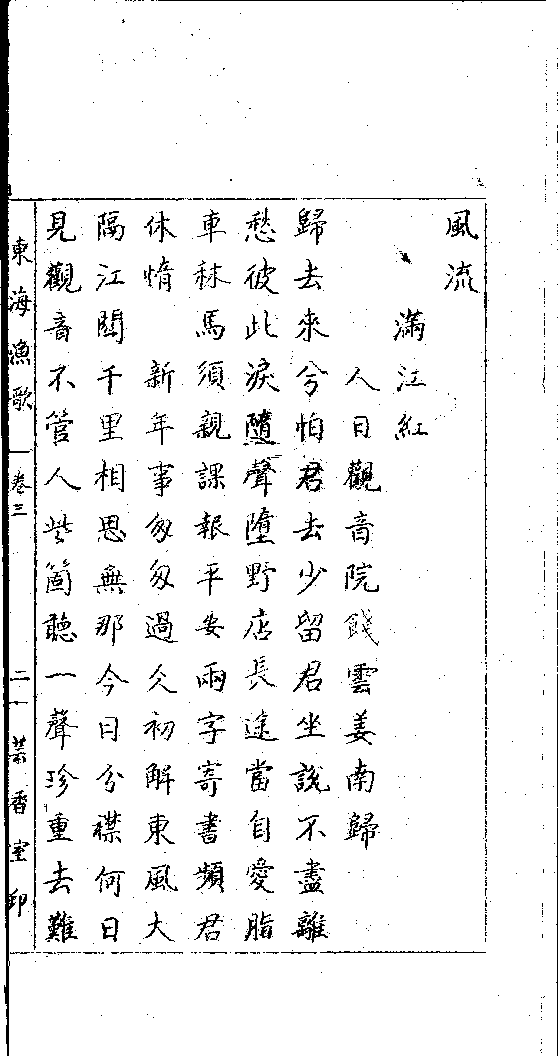 風流
滿江紅
人日觀音院餞雲姜南歸
歸去來兮怕君去少留君坐說不盡離
愁彼此淚隨聲墮野店長途當自愛脂
車秣馬須親課報平安兩字寄書頻君
休惰　新年事匆匆過久初解東風大
隔江關千里相思無那今日分襟何日
見觀音不管人些箇聽一聲珍重去難
東海漁歌　卷三　二一　芸香室印